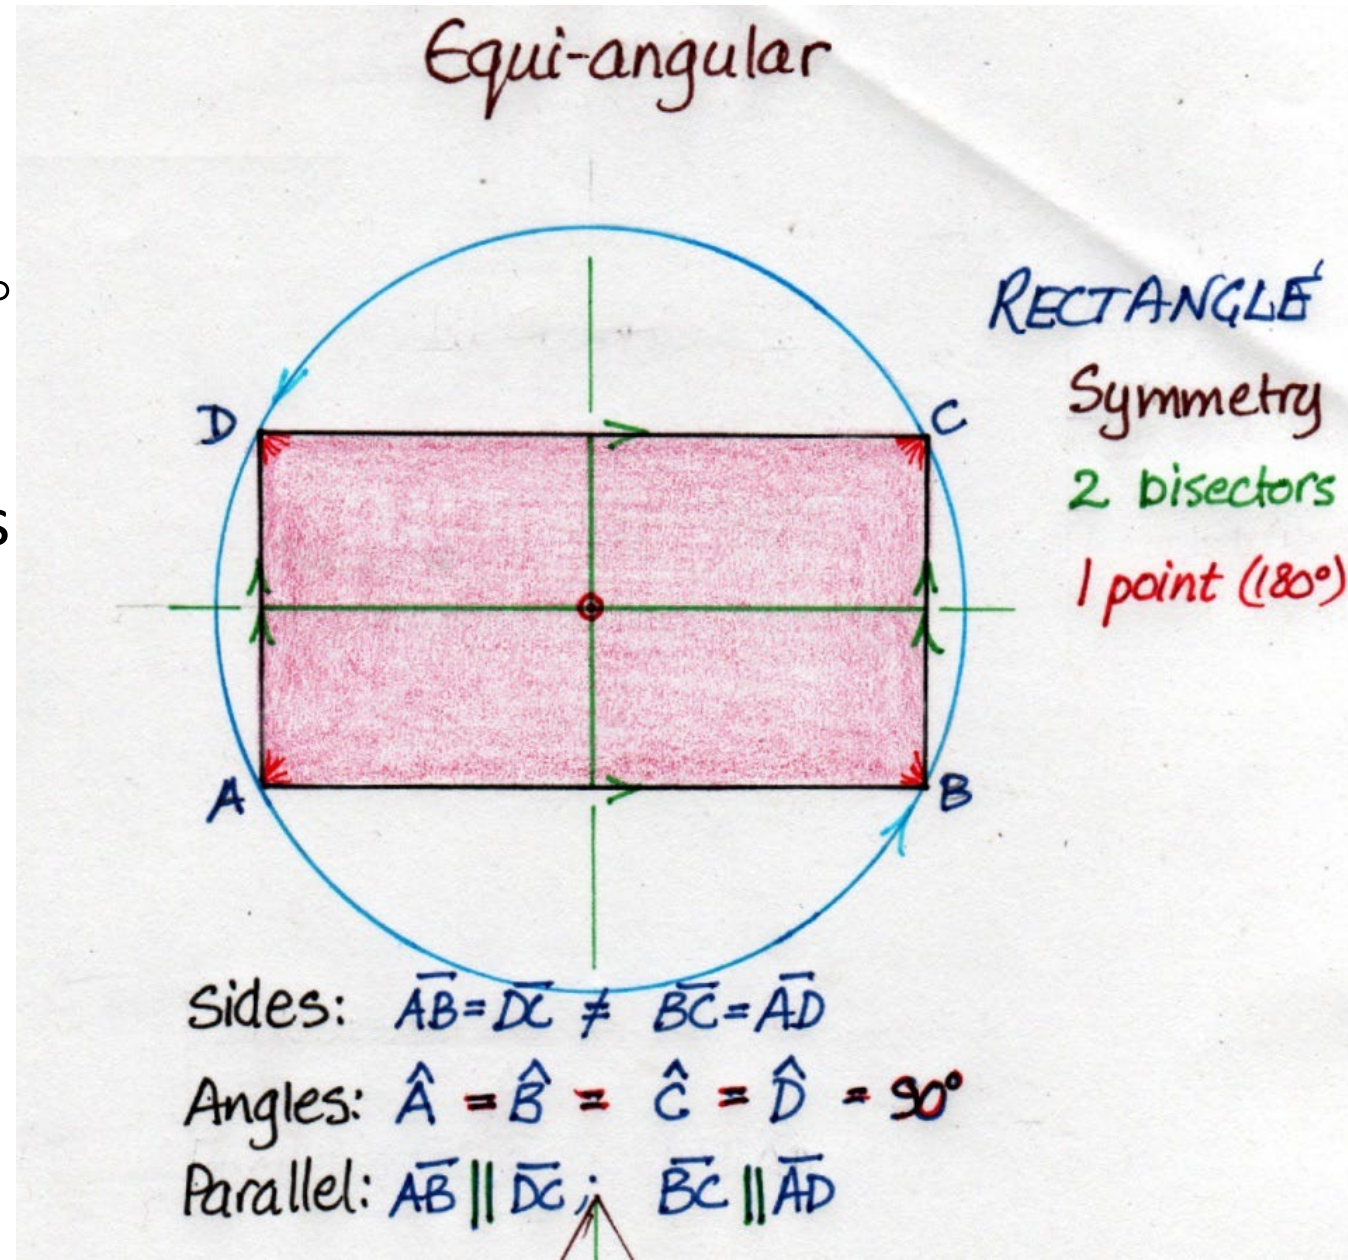 Equi-angular
RECTANGLE
Symmetry
2 bisectors
1 point (180°)
D
C
A
B
Sides: A̅B̅ = D̅C̅ ≠ B̅C̅ = A̅D̅
Angles: Â = B̂ = Ĉ = D̂ = 90°
Parallel: A̅B̅ || D̅C̅ ; B̅C̅ || A̅D̅
s